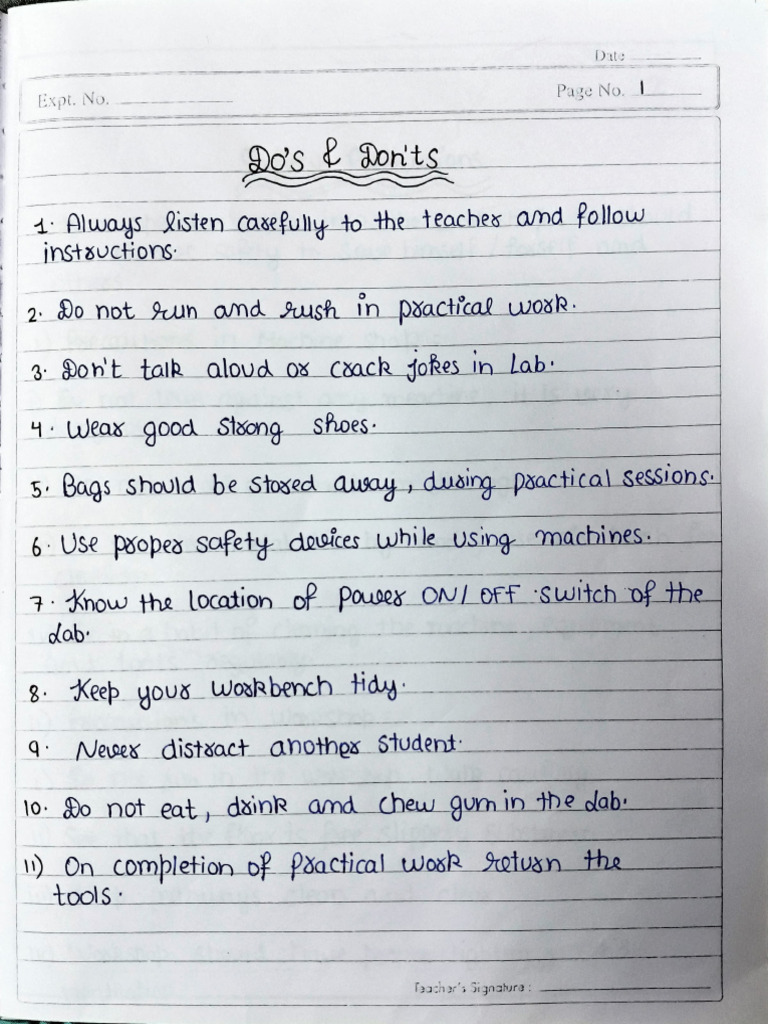 Date
Expt. No.
Page No. 1
Do's & Don'ts
1. Always listen carefully to the teacher and follow
instructions.
2. Do not run and rush in practical work.
3. Don't talk aloud or crack jokes in Lab.
4. Wear good strong shoes.
5. Bags should be stored away, during practical sessions.
6. Use proper safety devices while using machines.
7. Know the location of power ON/OFF switch of the
Lab.
8. Keep your workbench tidy.
9. Never distract another student.
10. Do not eat, drink and chew gum in the Lab.
11) On completion of practical work return the
tools.
Teacher's Signature :